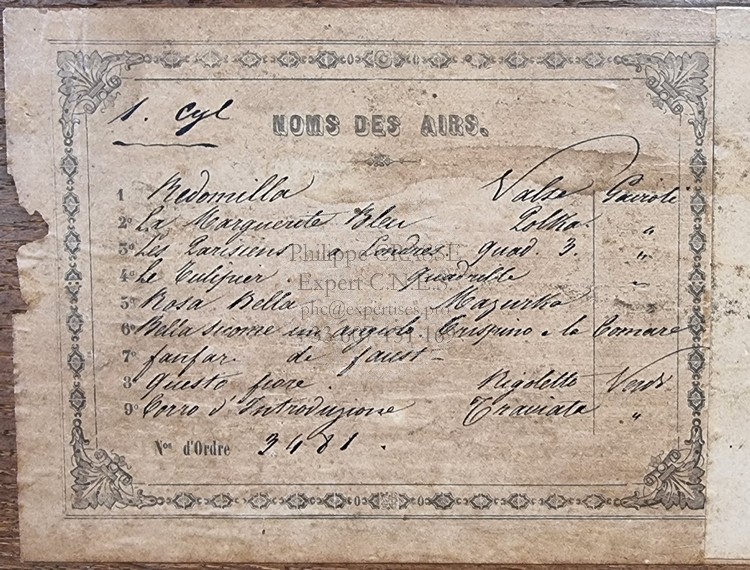 1. Cyl
NOMS DES AIRS.
1 Redomilla Valse
2º La Marguerite Bleu Polka. "
3º Les Parisiens a Londres quad. 3. "
4º Le quadrille "
5º Rosa Bella Mazurka "
6º Bella siccome un angiolo Crispino e la Comare
7º fanfar. de faust -
8 Questo fiore. Rigoletto Verdi
9º Corro d'Introduzione Traviata "
Nos d'Ordre 3481.
Philippe CRASSE
Expert C.N.E.S
phc@expertises.pro